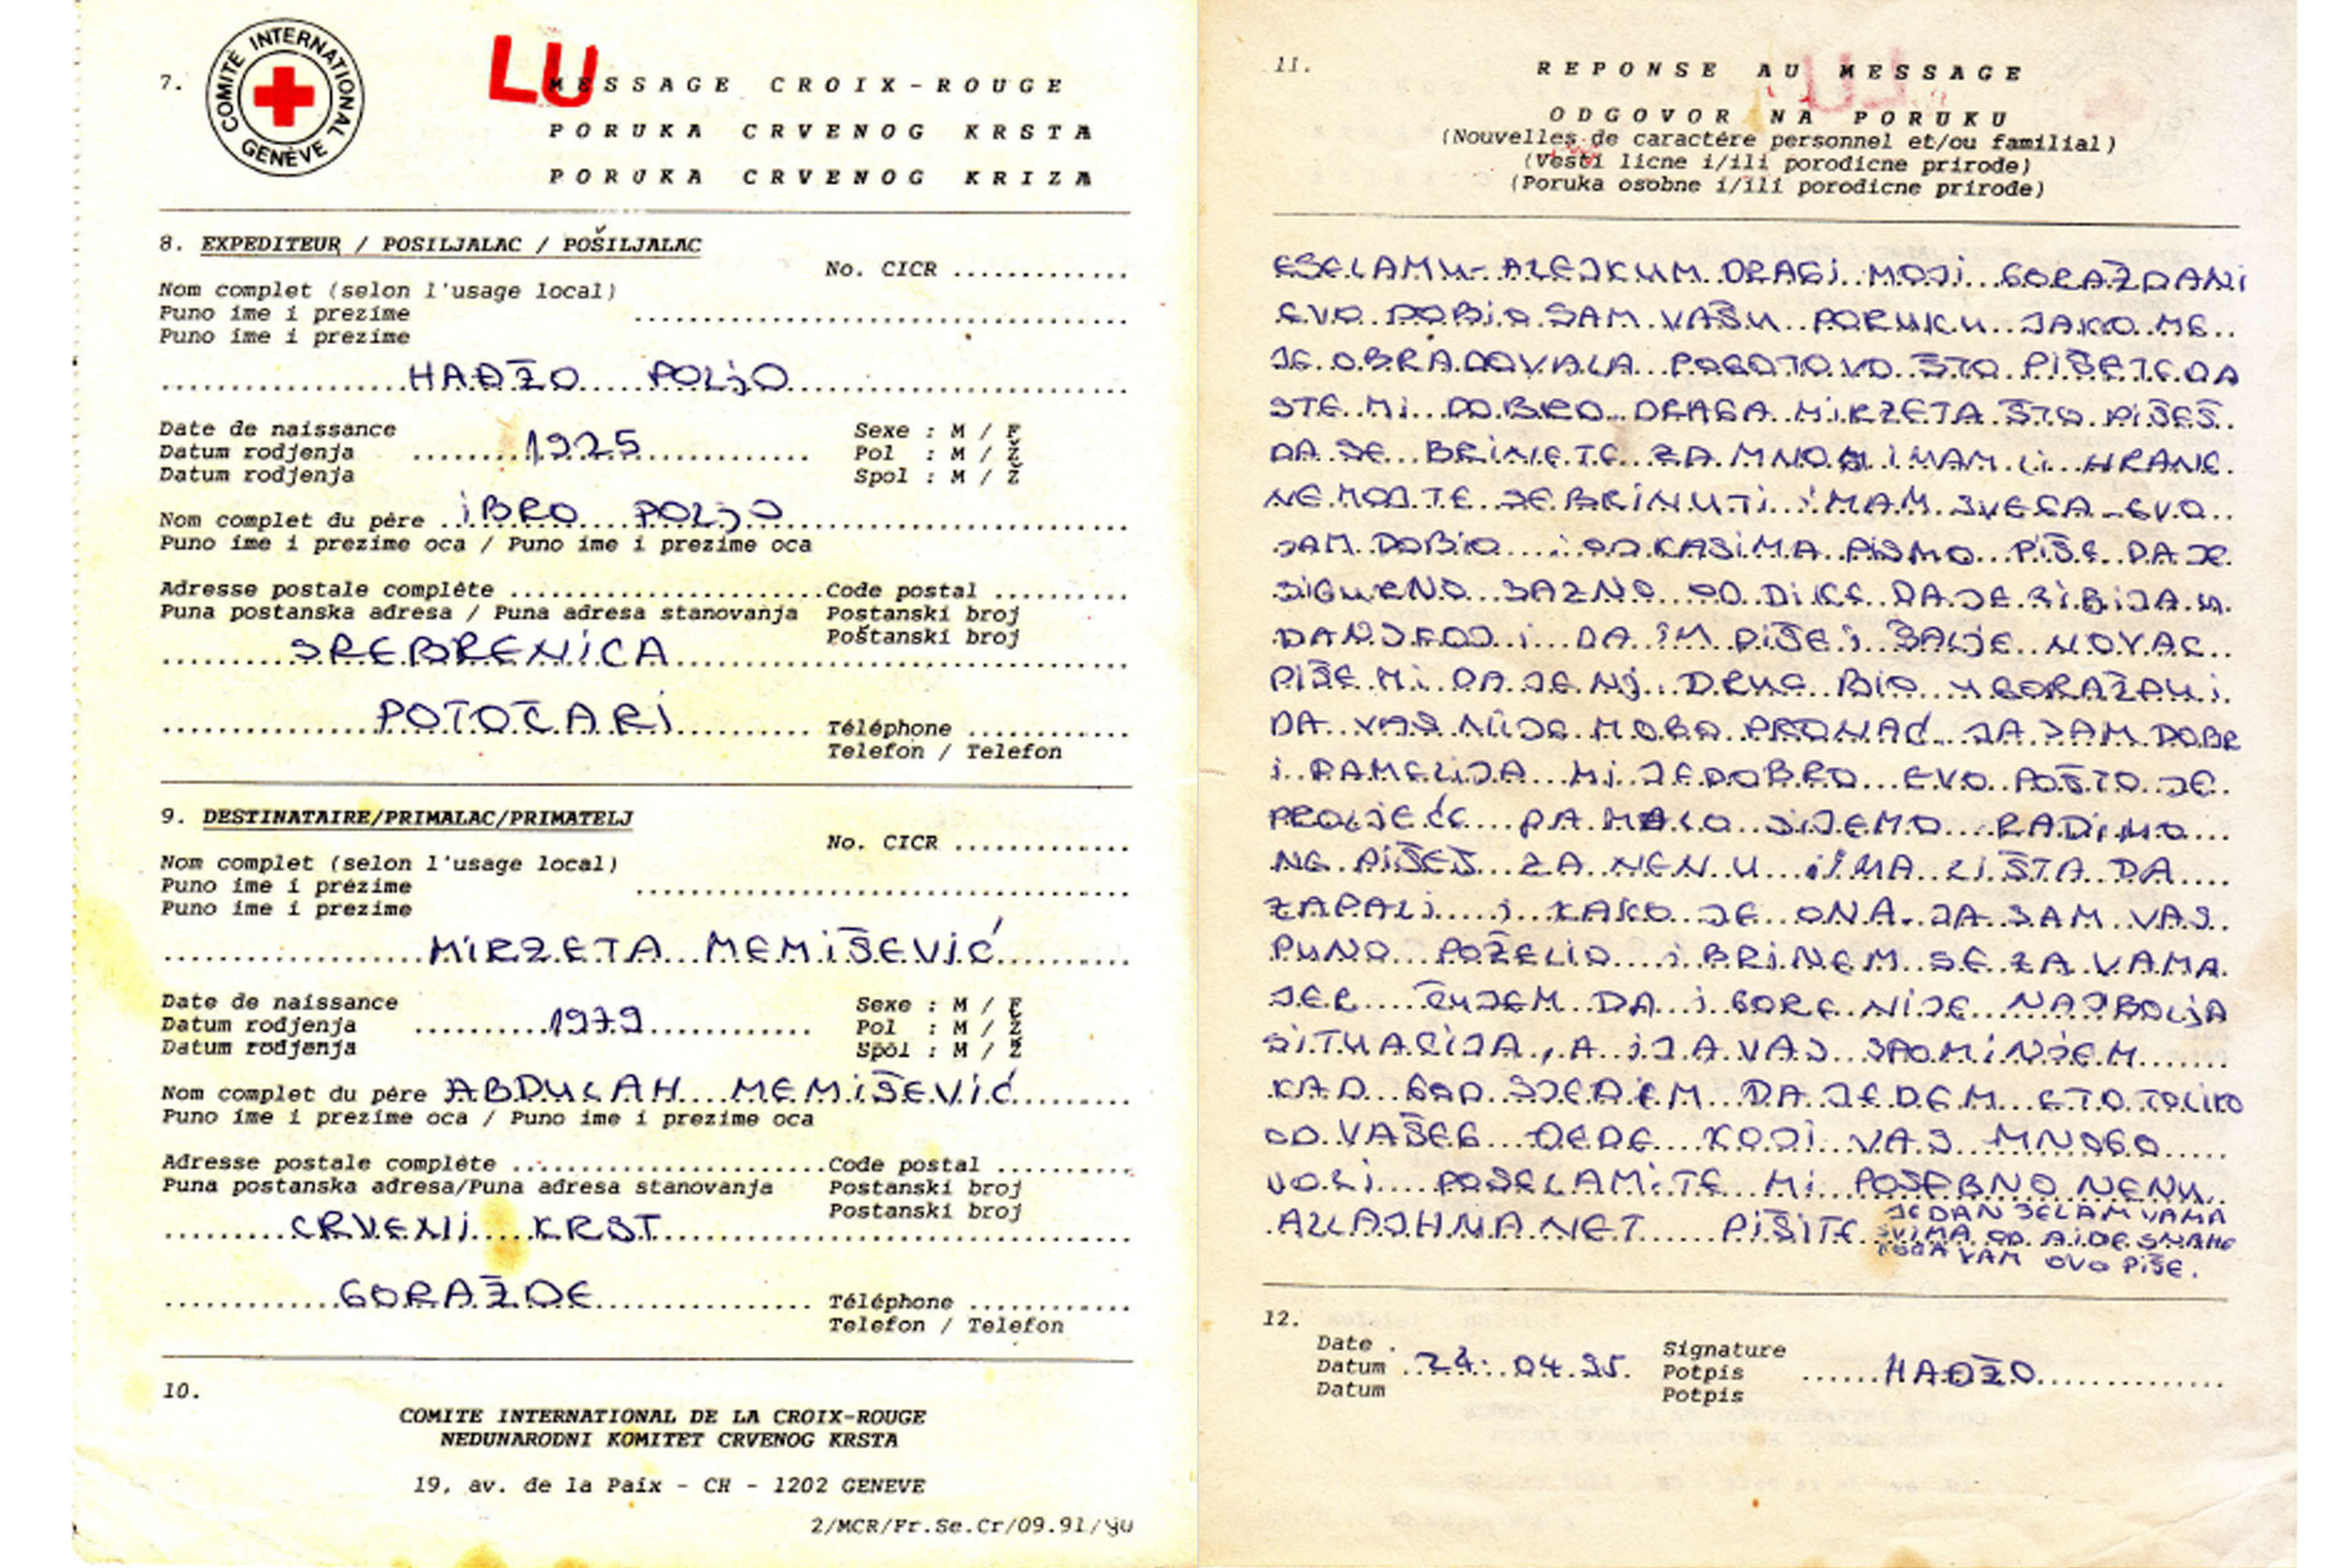 7.
COMITÉ INTERNATIONAL GENÈVE
LU
MESSAGE CROIX-ROUGE
PORUKA CRVENOG KRSTA
PORUKA CRVENOG KRIZA
8. EXPEDITEUR / POSILJALAC / POŠILJALAC
No. CICR
Nom complet (selon l'usage local)
Puno ime i prezime
Puno ime i prezime
HAĐŽO POLJO
Date de naissance
Datum rodjenja 1925
Datum rodjenja
Sexe : M / F
Pol : M / Ž
Spol : M / Ž
Nom complet du père IBRO POLJO
Puno ime i prezime oca / Puno ime i prezime oca
Adresse postale complète Code postal
Puna postanska adresa / Puna adresa stanovanja Postanski broj
Poštanski broj
SREBRENICA
POTOČARI
Téléphone
Telefon / Telefon
9. DESTINATAIRE/PRIMALAC/PRIMATELJ
No. CICR
Nom complet (selon l'usage local)
Puno ime i prezime
Puno ime i prezime
MIRZETA MEMIŠEVIĆ
Date de naissance
Datum rodjenja 1979
Datum rodjenja
Sexe : M / F
Pol : M / Ž
Spol : M / Ž
Nom complet du père ABDULAH MEMIŠEVIĆ
Puno ime i prezime oca / Puno ime i prezime oca
Adresse postale complète Code postal
Puna postanska adresa/Puna adresa stanovanja Postanski broj
Postanski broj
CRVENI KRST
GORAŽDE
Téléphone
Telefon / Telefon
10.
COMITE INTERNATIONAL DE LA CROIX-ROUGE
NEDUNARODNI KOMITET CRVENOG KRSTA
19, av. de la Paix - CH - 1202 GENEVE
2/MCR/Fr.Se.Cr/09.91/yu
11.
REPONSE AU MESSAGE
ODGOVOR NA PORUKU
(Nouvelles de caractère personnel et/ou familial)
(Vesti licne i/ili porodicne prirode)
(Poruka osobne i/ili porodicne prirode)
ESELAMU-ALEJKUM DRAGI MOJI GORAŽDANI
EVO DOBIO SAM VAŠU PORUKU JAKO ME
JE OBRADOVALA POGOTOVO ŠTO PIŠETE DA
STE MI DOBRO DRAGA MIRZETA ŠTO PIŠEŠ
DA SE BRINETE ZA MNOM IMAM LI HRANE
NEMOJTE SE BRINUTI IMAM SVEGA EVO
SAM DOBIO I OD KASIMA PISMO PIŠE DA JE
SIGURNO SAZNO OD DIKE DA JE RIBIJA U
I DA IM PIŠE I ŠALJE NOVAC
PIŠE MI DA JE NJ. DRUG BIO U
DA VAS NIJE MOGO PRONAĆ JA SAM DOBR
I RAMELIJA MI JE DOBRO EVO POŠTO JE
PROLJEĆE PA MALO SIJEMO RADIMO
NE PIŠEŠ ZA NENU IMA LI ŠTA DA
ZAPALI I KAKO JE ONA JA SAM VAS
PUNO POŽELIO I BRINEM SE ZA VAMA
JER ČUJEM DA I GORE NIJE NAJBOLJA
SITUACIJA, A I JA VAS SPOMINJEM
KAD GOD SJEDEM DA JEDEM ETO TOLIKO
OD VAŠEG DEDE KOJI VAS MNOGO
VOLI POSELAMITE MI POSEBNO NENU
ALLAJHMANET PIŠITE JEDAN SELAM VAMA
SVIMA OD AIDE SNAHE
KOJA VAM OVO PIŠE.
12.
Date
Datum 24. 04. 95.
Datum
Signature
Potpis HAĐŽO
Potpis